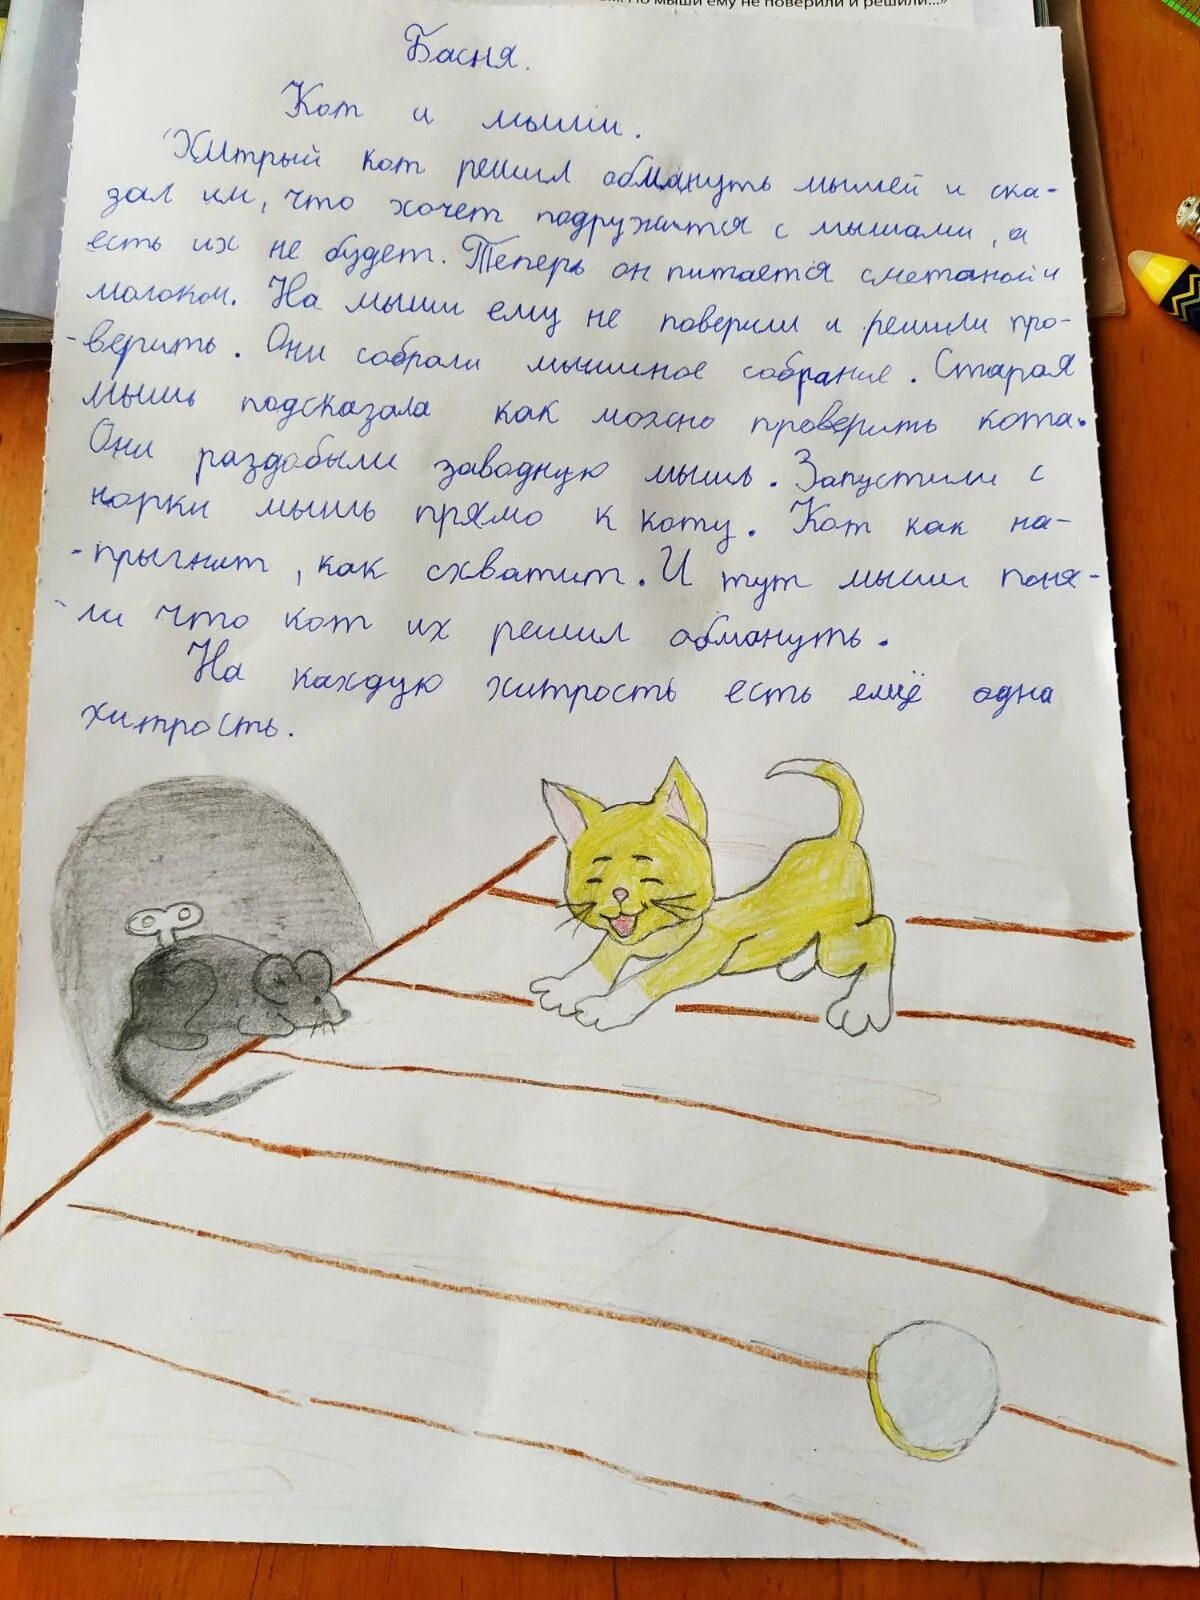 но мыши ему не поверили и решили...»
Басня.
Кот и мыши.
Хитрый кот решил обмануть мышей и ска-
зал им, что хочет подружится с мышами, а
есть их не будет. Теперь он питается сметаной и
молоком. На мыши ему не поверили и решили про-
-верить. Они собрали мышиное собрание. Старая
мышь подсказала как можно проверить кота.
Они раздобыли заводную мышь. Запустили с
норки мышь прямо к коту. Кот как на-
-прыгнит, как схватит. И тут мыши поня-
-ли что кот их решил обмануть.
На каждую хитрость есть ещё одна
хитрость.